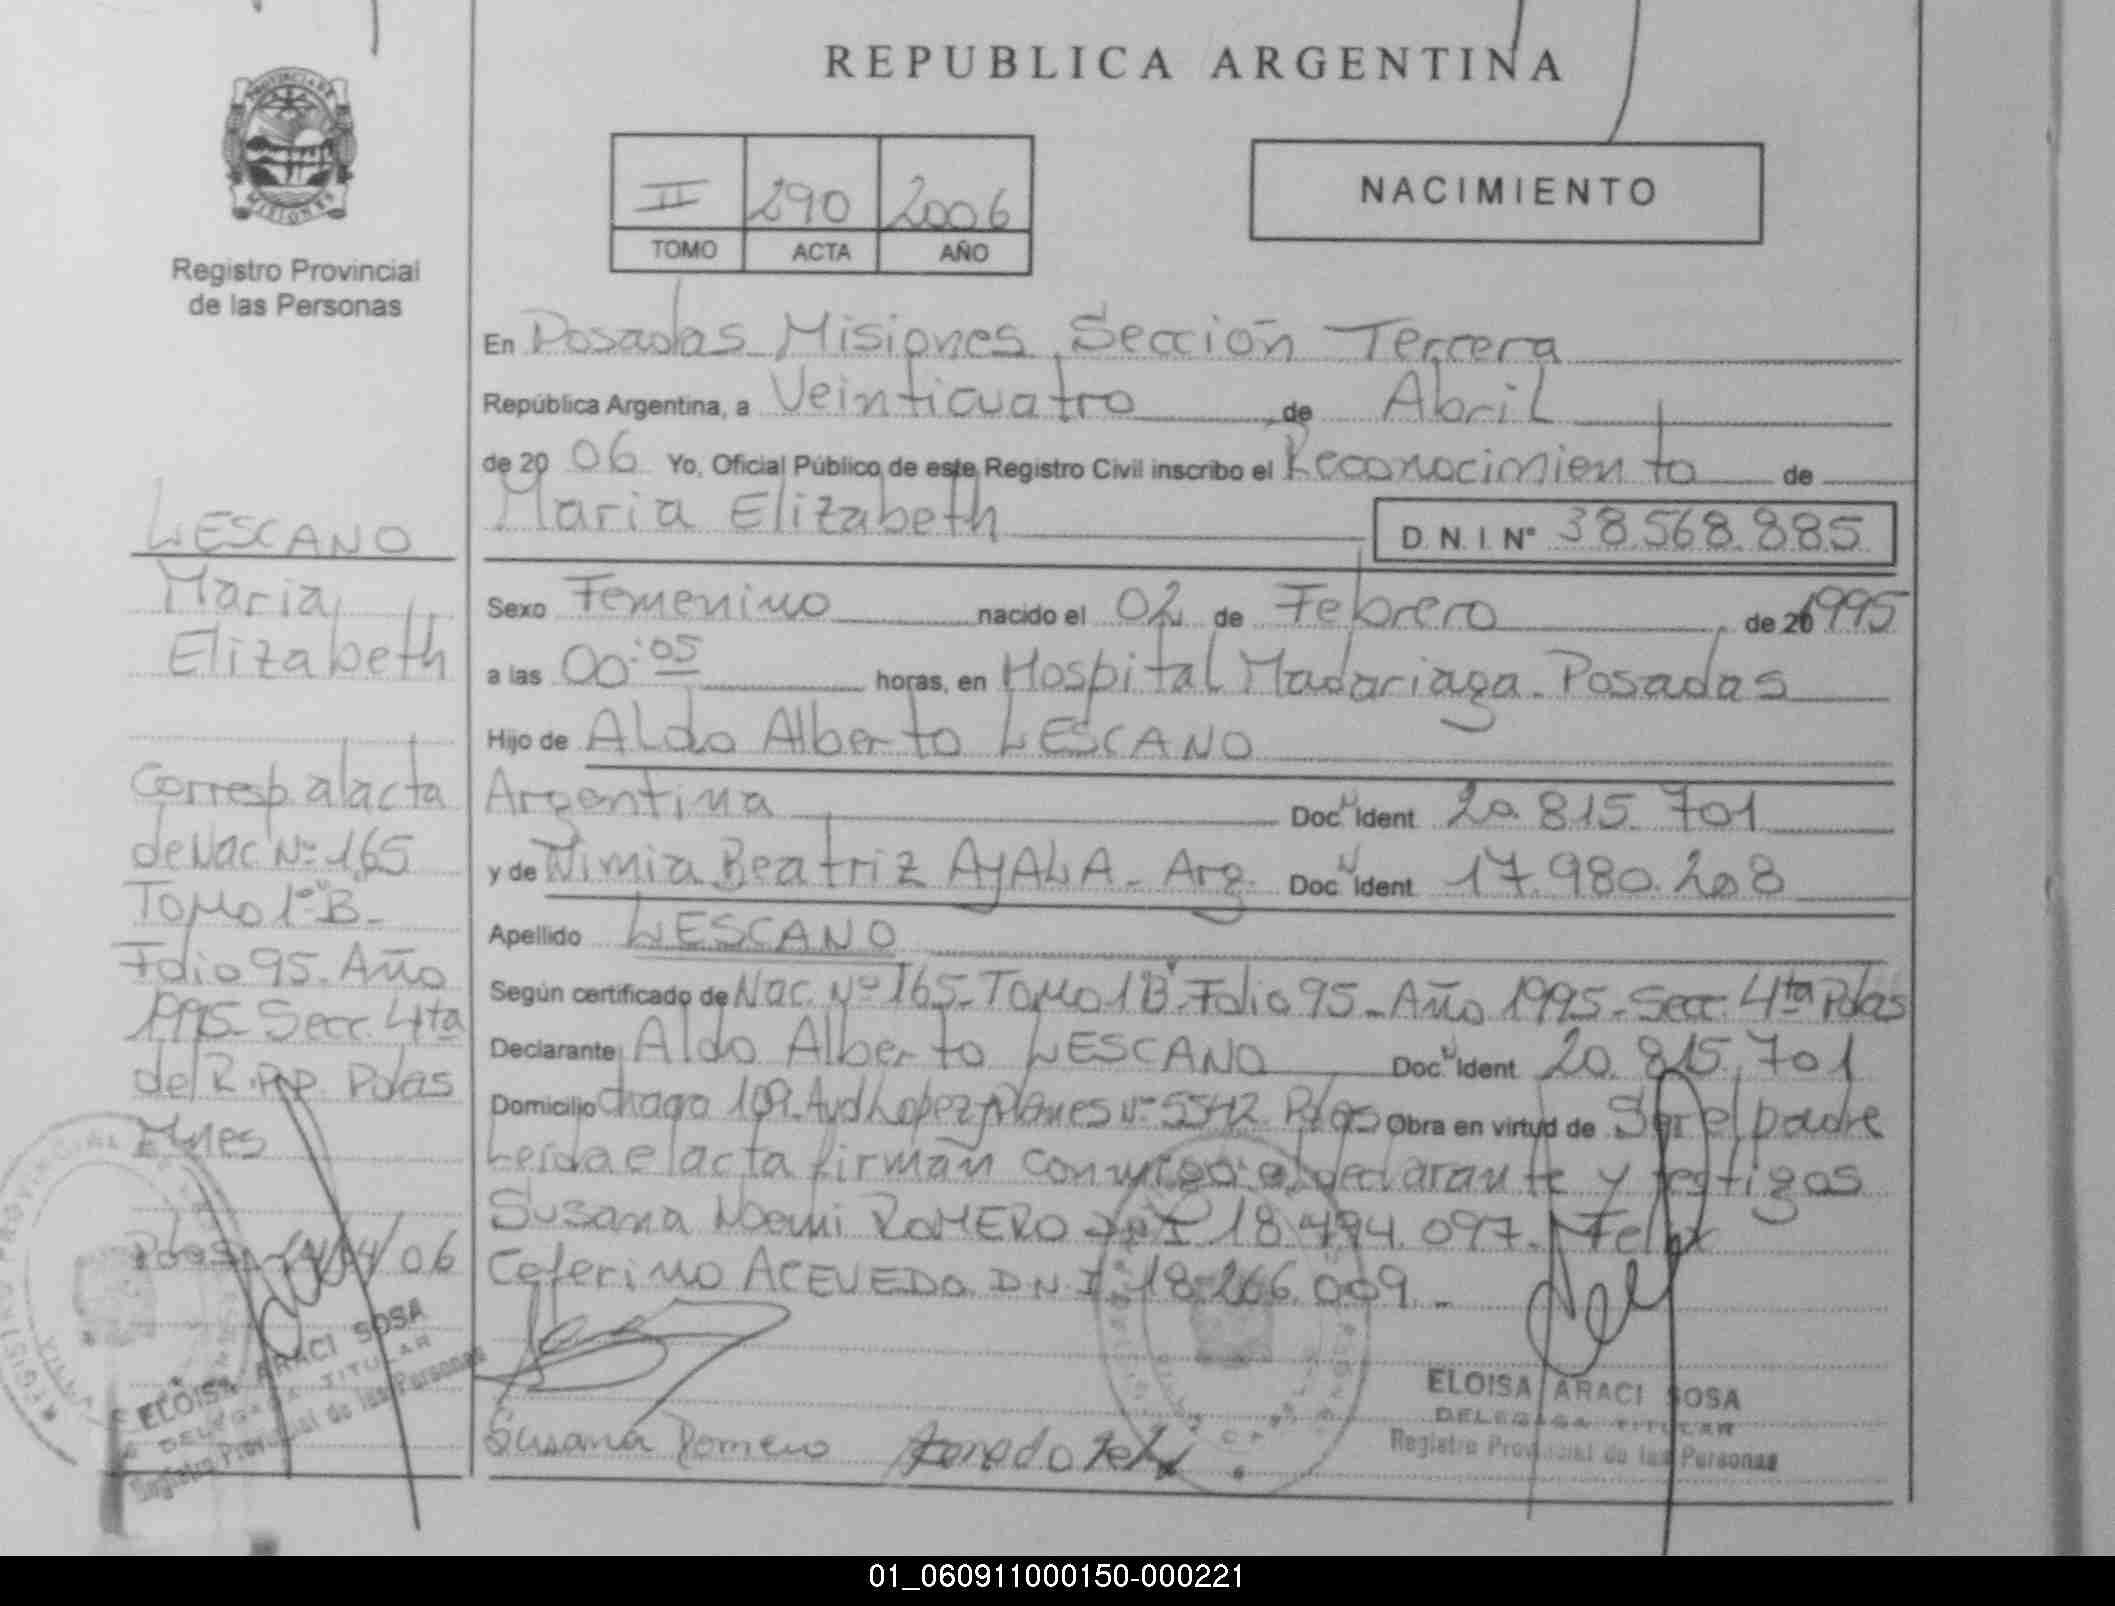 REPUBLICA ARGENTINA
PROVINCIA DE
MISIONES
Registro Provincial
de las Personas
II 290 2006
TOMO ACTA AÑO
NACIMIENTO
En Posadas Misiones, Sección Tercera
República Argentina, a Veinticuatro de Abril
de 20 06 Yo, Oficial Público de este Registro Civil inscribo el Reconocimiento de
Maria Elizabeth D.N.I. N° 38.568.885
Sexo Femenino nacido el 02 de Febrero de 20 1995
a las 00:05 horas, en Hospital Madariaga. Posadas
Hijo de Aldo Alberto LESCANO
Argentina Doc. Ident 20.815.701
y de Nimia Beatriz AYALA - Arg. Doc. Ident 17.980.208
Apellido LESCANO
Según certificado de Nac. Nº 165 - Tomo 1ºB - Folio 95 - Año 1995 - Secc. 4ta Pdas
Declarante Aldo Alberto LESCANO Doc. Ident 20.815.701
Domicilio chaga 109. Avd Lopez y Planes Nº 5542 Pdas Obra en virtud de Ser el padre
Leída el acta firman conmigo el declarante y testigos
Susana Noemi ROMERO DNI 18.494.097. Felix
Ceferino ACEVEDO. D.N.I. 18.266.009 -
Susana Romero
ELOISA ARACI SOSA
DELEGADA TITULAR
Registro Provincial de las Personas
LESCANO
Maria
Elizabeth
Corresp. al acta
de Nac Nº 165
Tomo 1ºB -
Folio 95 - Año
1995 - Secc. 4ta
del R.P.P. Pdas
Mnes
Pdas, 24/04/06
ELOISA ARACI SOSA
DELEGADA TITULAR
Registro Provincial de las Personas
01_060911000150-000221